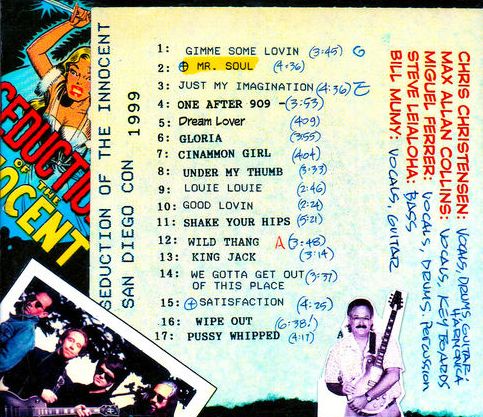 SEDUCTION
OF THE
INNOCENT
SEDUCTION OF THE INNOCENT
SAN DIEGO CON 1999
1: GIMME SOME LOVIN (3:45) G
2: ⊕ MR. SOUL (4:36)
3: JUST MY IMAGINATION (4:36) E
4: ONE AFTER 909 - (3:53)
5: Dream Lover (409)
6: GLORIA (3:55)
7: CINAMMON GIRL (404)
8: UNDER MY THUMB (3:33)
9: LOUIE LOUIE (2:46)
10: GOOD LOVIN (2:24)
11: SHAKE YOUR HIPS (5:21)
12: WILD THANG A (3:48)
13: KING JACK (3:14)
14: WE GOTTA GET OUT (3:37)
OF THIS PLACE
15: ⊕ SATISFACTION (4:25)
16: WIPE OUT (6:38!)
17: PUSSY WHIPPED (4:17)
CHRIS CHRISTENSEN: VOCALS, DRUMS, GUITAR,
HARMONICA
MAX ALLAN COLLINS: VOCALS, KEYBOARDS
MIGUEL FERRER: VOCALS, DRUMS, PERCUSSION
STEVE LEIALOHA: BASS
BILL MUMY: VOCALS, GUITAR